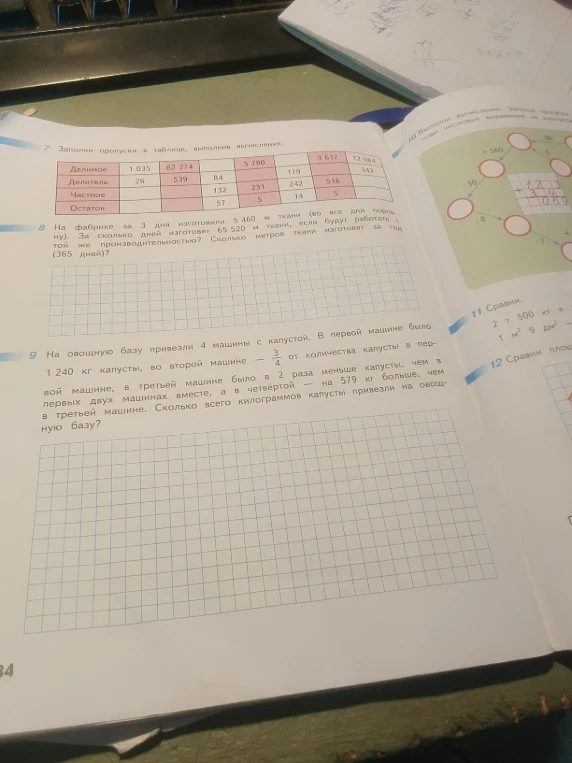 7 Заполни пропуски в таблице, выполнив вычисления.
Делимое 1 035 62 274 5 780 3 617 12 984
Делитель 26 539 84 129 342
Частное 132 231 242 516
Остаток 57 5 14 5
8 На фабрике за 3 дня изготовили 5 460 м ткани (во все дни поров-
ну). За сколько дней изготовят 65 520 м ткани, если будут работать с
той же производительностью? Сколько метров ткани изготовят за год
(365 дней)?
9 На овощную базу привезли 4 машины с капустой. В первой машине было
1 240 кг капусты, во второй машине — 3/4 от количества капусты в пер-
вой машине, в третьей машине было в 2 раза меньше капусты, чем в
первых двух машинах вместе, а в четвёртой — на 579 кг больше, чем
в третьей машине. Сколько всего килограммов капусты привезли на овощ-
ную базу?
34
10 Выполни вычисления. Заполни пропуски
+ 560
: 30
· 8
11 Сравни.
2 т 500 кг +
1 м² 9 дм² −
12 Сравни площ